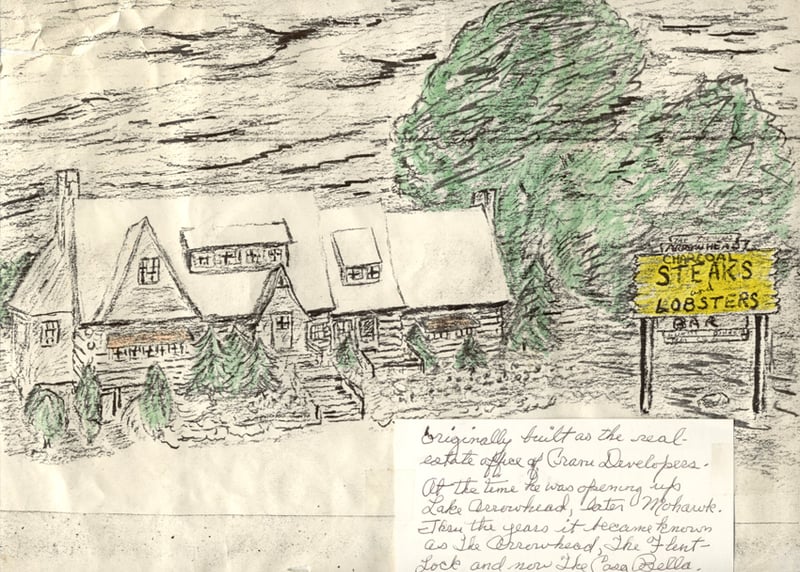 THE
ARROWHEAD
CHARCOAL
STEAKS
LOBSTERS
BAR
Originally built as the real-
estate office of Crane Developers.
At the time he was opening up
Lake Arrowhead, later Mohawk.
Thru the years it became known
as The Arrowhead, The Flint-
Lock and now The Casa Bella.